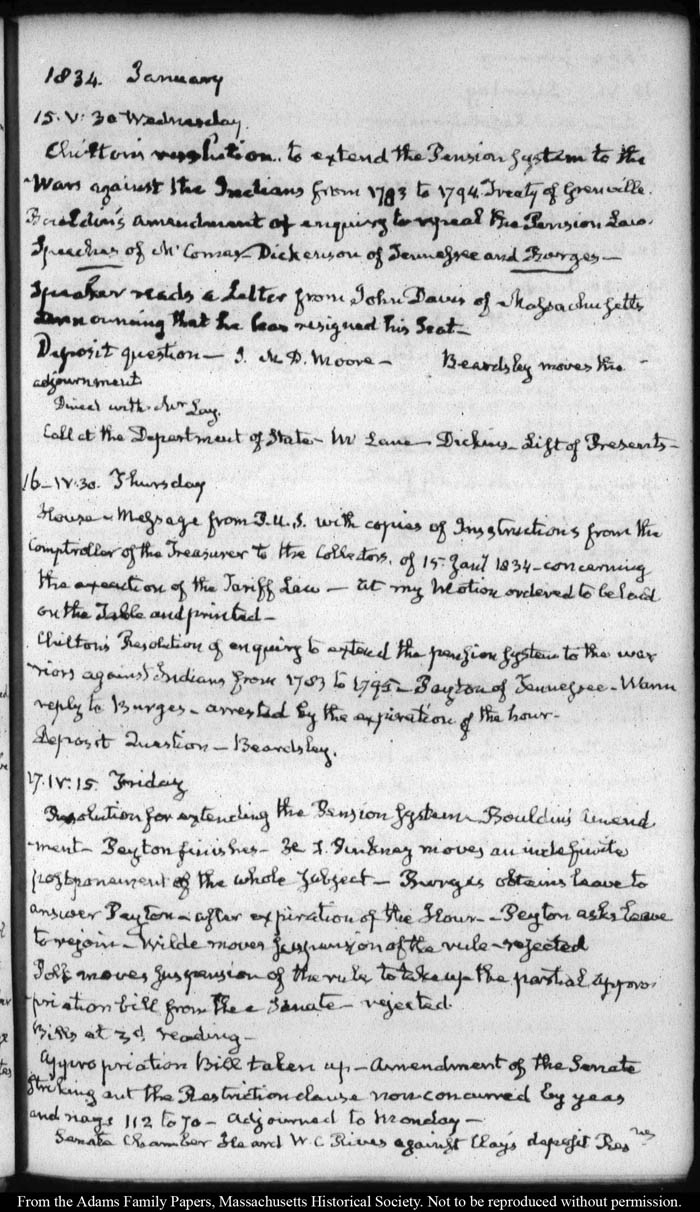 1834. January
15. V: 30 Wednesday.
Chilton's resolution.. to extend the Pension System to the
Wars against the Indians from 1783 to 1794. Treaty of Grenville.
Bouldin's amendment of enquiry to repeal the Pension Law.
Speeches of McComas - Dickerson of Tennessee and Burges -
Speaker reads a Letter from John Davis of Massachusetts
announning that he has resigned his Seat -
Deposit question - S. McD. Moore - Beardsley moves the
adjournment
Dined with Mr Lay.
Call at the Department of State - McLane - Dickins - List of Presents -
16 - IV. 30. Thursday
House - Message from P.U.S. with copies of Instructions from the
Comptroller of the Treasurer to the Collectors, of 15. Jany 1834 - concerning
the execution of the Tariff Law - at my Motion ordered to be laid
on the Table and printed -
Chilton's Resolution of enquiry to extend the pension System to the war
riors against Indians from 1783 to 1795 - Peyton of Tennessee - Warm
reply to Burges - arrested by the expiration of the hour -
Deposit Question - Beardsley.
17. IV: 15. Friday
Resolution for extending the Pension System - Bouldin's amend
-ment - Peyton finishes - Pinkney moves an indefinite
postponement of the whole Subject - Burges obtains leave to
answer Peyton - after expiration of the Hour - Peyton asks leave
to rejoin - Wilde moves suspension of the rule - rejected
Polk moves suspension of the rule to take up the partial appro
priation bill from the Senate - rejected.
Bills at 3d. reading -
Appropriation Bill taken up - Amendment of the Senate
striking out the Restriction clause non-concurred by yeas
and nays 112 to 70 - adjourned to Monday -
Senate Chamber Heard W. C. Rives against Clay's deposit Resns
From the Adams Family Papers, Massachusetts Historical Society. Not to be reproduced without permission.